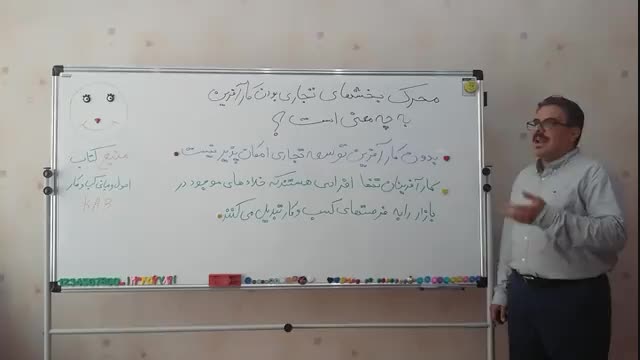 محرک بخشهای تجاری بودن کارآفرین
به چه معنی است؟
بدون کارآفرین توسعه تجاری امکان پذیر نیست.
کارآفرینان تنها افرادی هستند که خلاءهای موجود در
بازار را به فرصتهای کسب و کار تبدیل می کنند.
منبع کتاب
اصول و مبانی کسب و کار
KAB